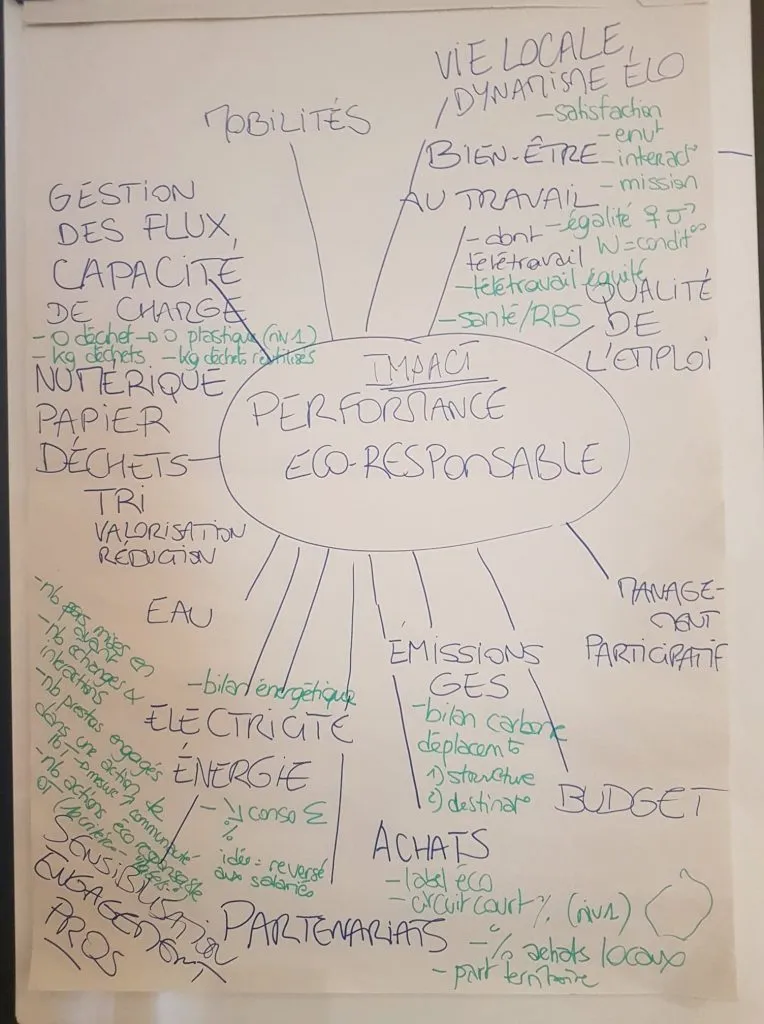 VIE LOCALE,
DYNAMISME ÉCO
MOBILITÉS
- satisfaction
- envt
BIEN-ÊTRE - interact°
AU TRAVAIL - mission
- égalité ♀ ♂
- dont
télétravail W = condit°s
- télétravail équité
- santé/RPS
QUALITÉ
DE
L'EMPLOI
GESTION
DES FLUX,
CAPACITÉ
DE CHARGE
- 0 déchet → 0 plastique (niv 1)
- kg déchets - kg déchets réutilisés
NUMÉRIQUE
PAPIER
DÉCHETS
TRI
VALORISATION
RÉDUCTION
IMPACT
PERFORMANCE
ECO-RESPONSABLE
EAU
MANAGE-
MENT
PARTICIPATIF
- bilan énergétique
ÉLECTRICITÉ
ÉNERGIE
- ↘ conso Σ
%
idée = reversé
aux salariés
ÉMISSIONS
GES
- bilan carbone
déplacemts
1) structure
2) destinat°
BUDGET
ACHATS
- label éco
- circuit court % (niv 1)
- % achats locaux
- part territoire
PARTENARIATS
- nb pros mises en
avant
- nb échanges &
interactions
- nb prestas engagés
dans une action de
- nb actions éco responsable
OT
SENSIBILISATION
ENGAGEMENT
PROS